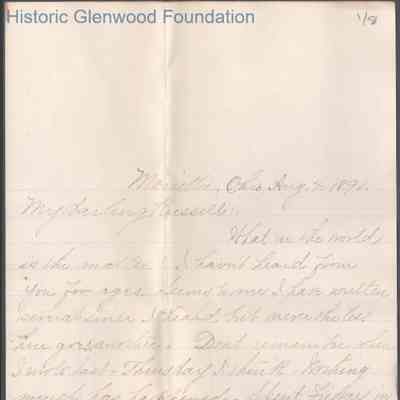 Historic Glenwood Foundation
1/8
Marietta, Ohio Aug. 189
My darling Russell:
What in the world
is the matter I havn't heard from
you for ages. Seems to me I have written
since I heard, but nevertheless
here goes Don't remember when
I wrote last - Thursday I think. Nothing
much has happened. Spent Friday in